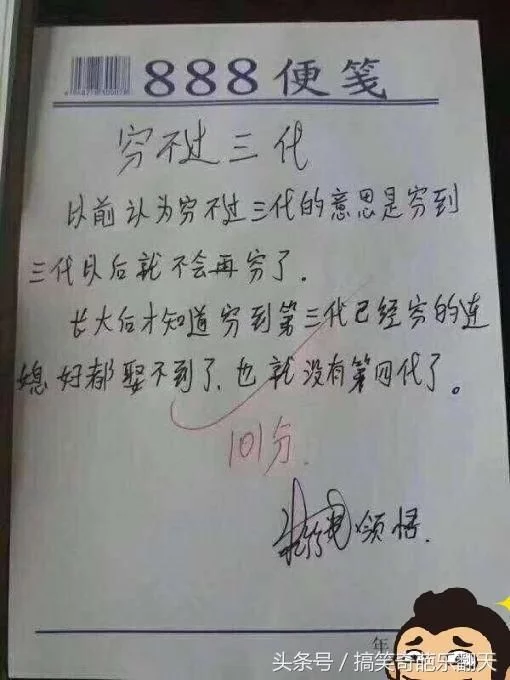 888便笺
穷不过三代
以前认为穷不过三代的意思是穷到
三代以后就不会再穷了.
长大后才知道穷到第三代已经穷的连
媳妇都娶不到了,也就没有第四代了。
101分.
领悟.
年
头条号/搞笑奇葩乐翻天